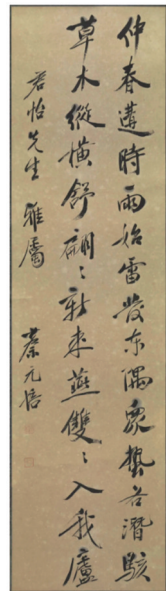 仲春遘時雨始雷發东隅衆蟄各潛駭
草木縱橫舒翩〻新来燕雙〻入我廬
君怡先生 雅屬 蔡元培